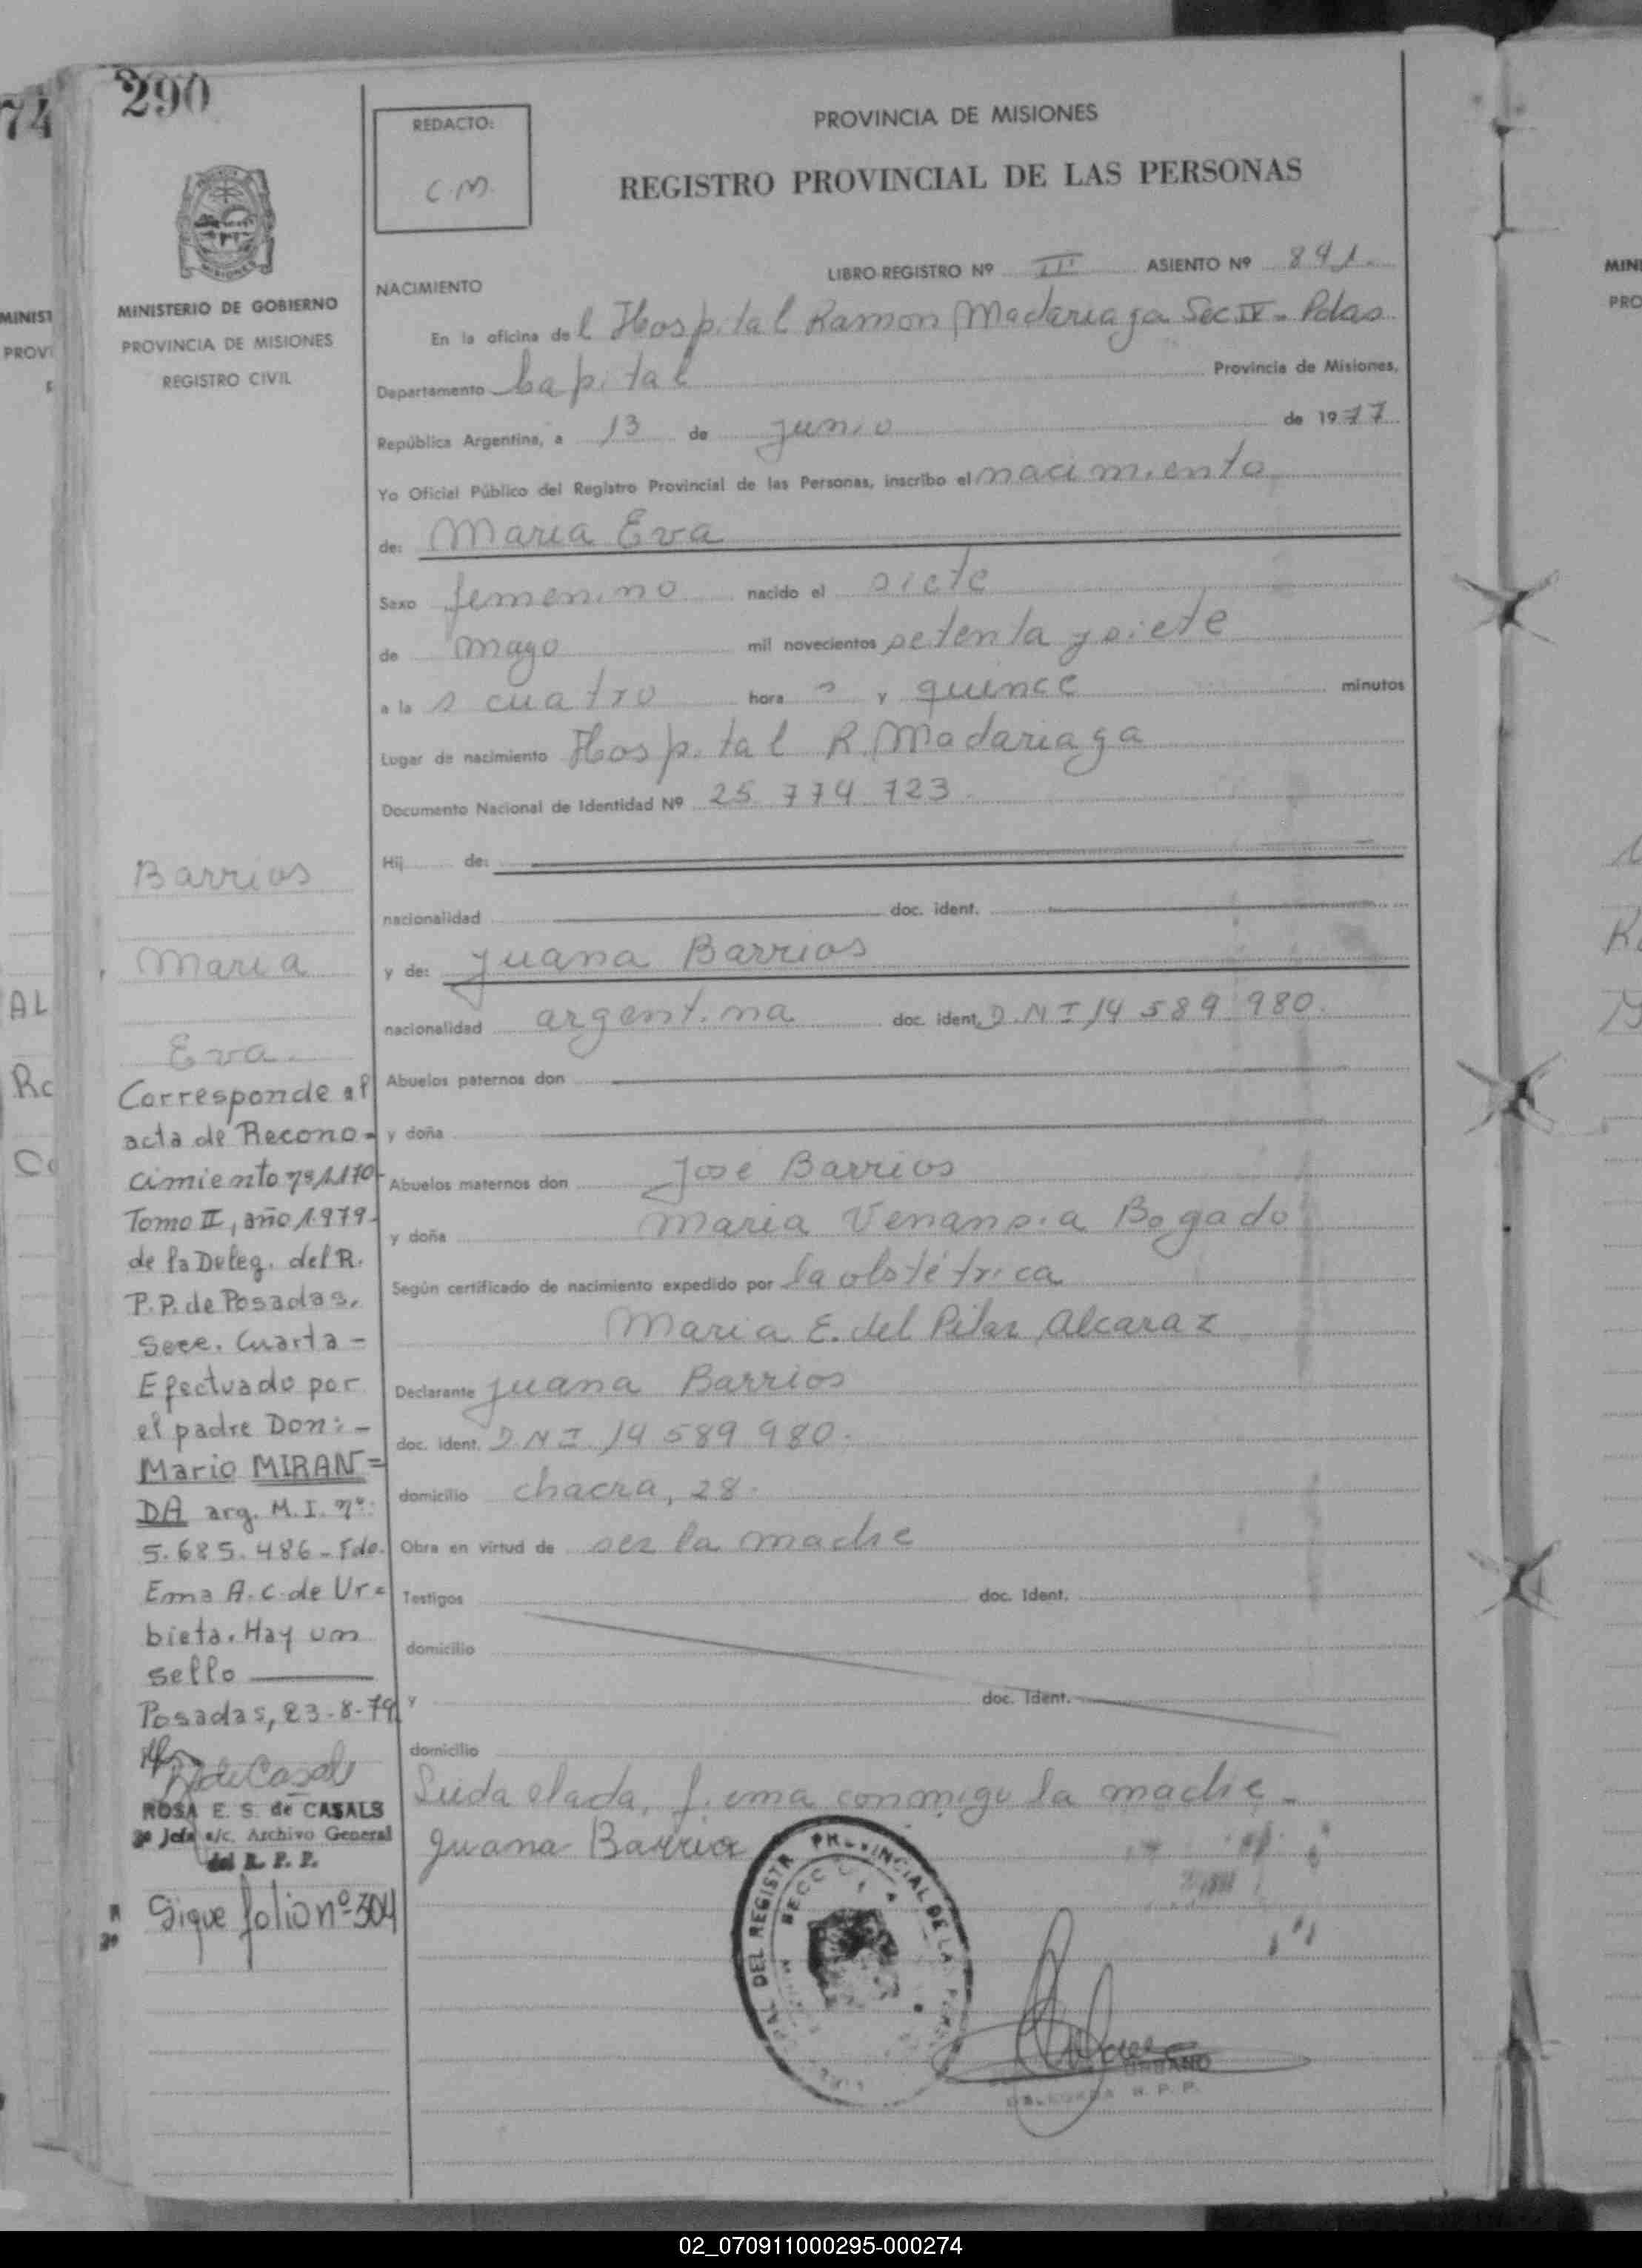 290
74
REDACTO:
C.M.
PROVINCIA DE MISIONES
REGISTRO PROVINCIAL DE LAS PERSONAS
MINISTERIO DE GOBIERNO
PROVINCIA DE MISIONES
REGISTRO CIVIL
LIBRO-REGISTRO Nº II ASIENTO Nº 841.
NACIMIENTO
En la oficina del Hospital Ramon Madariaga Sec IV - Pdas
Departamento Capital Provincia de Misiones,
República Argentina, a 13 de junio de 1977
Yo Oficial Público del Registro Provincial de las Personas, inscribo el nacimiento
de: Maria Eva
Sexo femenino nacido el siete
de mayo mil novecientos setenta y siete
a la s cuatro hora s y quince minutos
Lugar de nacimiento Hospital R. Madariaga
Documento Nacional de Identidad Nº 25 774 723
Hij de:
nacionalidad doc. ident.
y de: Juana Barrios
nacionalidad argentina doc. ident. D.N.I 14 589 980.
Abuelos paternos don
y doña
Abuelos maternos don José Barrios
y doña Maria Venansia Bogado
Según certificado de nacimiento expedido por la obstétrica
Maria E. del Pilar Alcaraz
Declarante Juana Barrios
doc. ident. D.N.I 14 589 980.
domicilio chacra, 28.
Obra en virtud de ser la madre
Testigos doc. Ident.
domicilio
y doc. Ident.
domicilio
Leida el acta, firma conmigo la madre.
Juana Barrio
Barrios
Maria
Eva.
Corresponde al
acta de Recono-
cimiento nº 1.170-
Tomo II, año 1.979-
de la Deleg. del R.
P.P. de Posadas,
Secc. Cuarta -
Efectuado por
el padre Don: -
Mario MIRAN=
DA arg. M.I. nº:
5.685.486 - Fdo.
Ema A.C. de Ur=
bieta. Hay un
sello
Posadas, 23-8-79
ROSA E. S. de CASALS
2º Jefa a/c. Archivo General
del R. P. P.
Sigue folio nº 304
DEL REGISTR PROVINCIAL DE LA
URBANO
DELEGADA R. P. P.
02_070911000295-000274